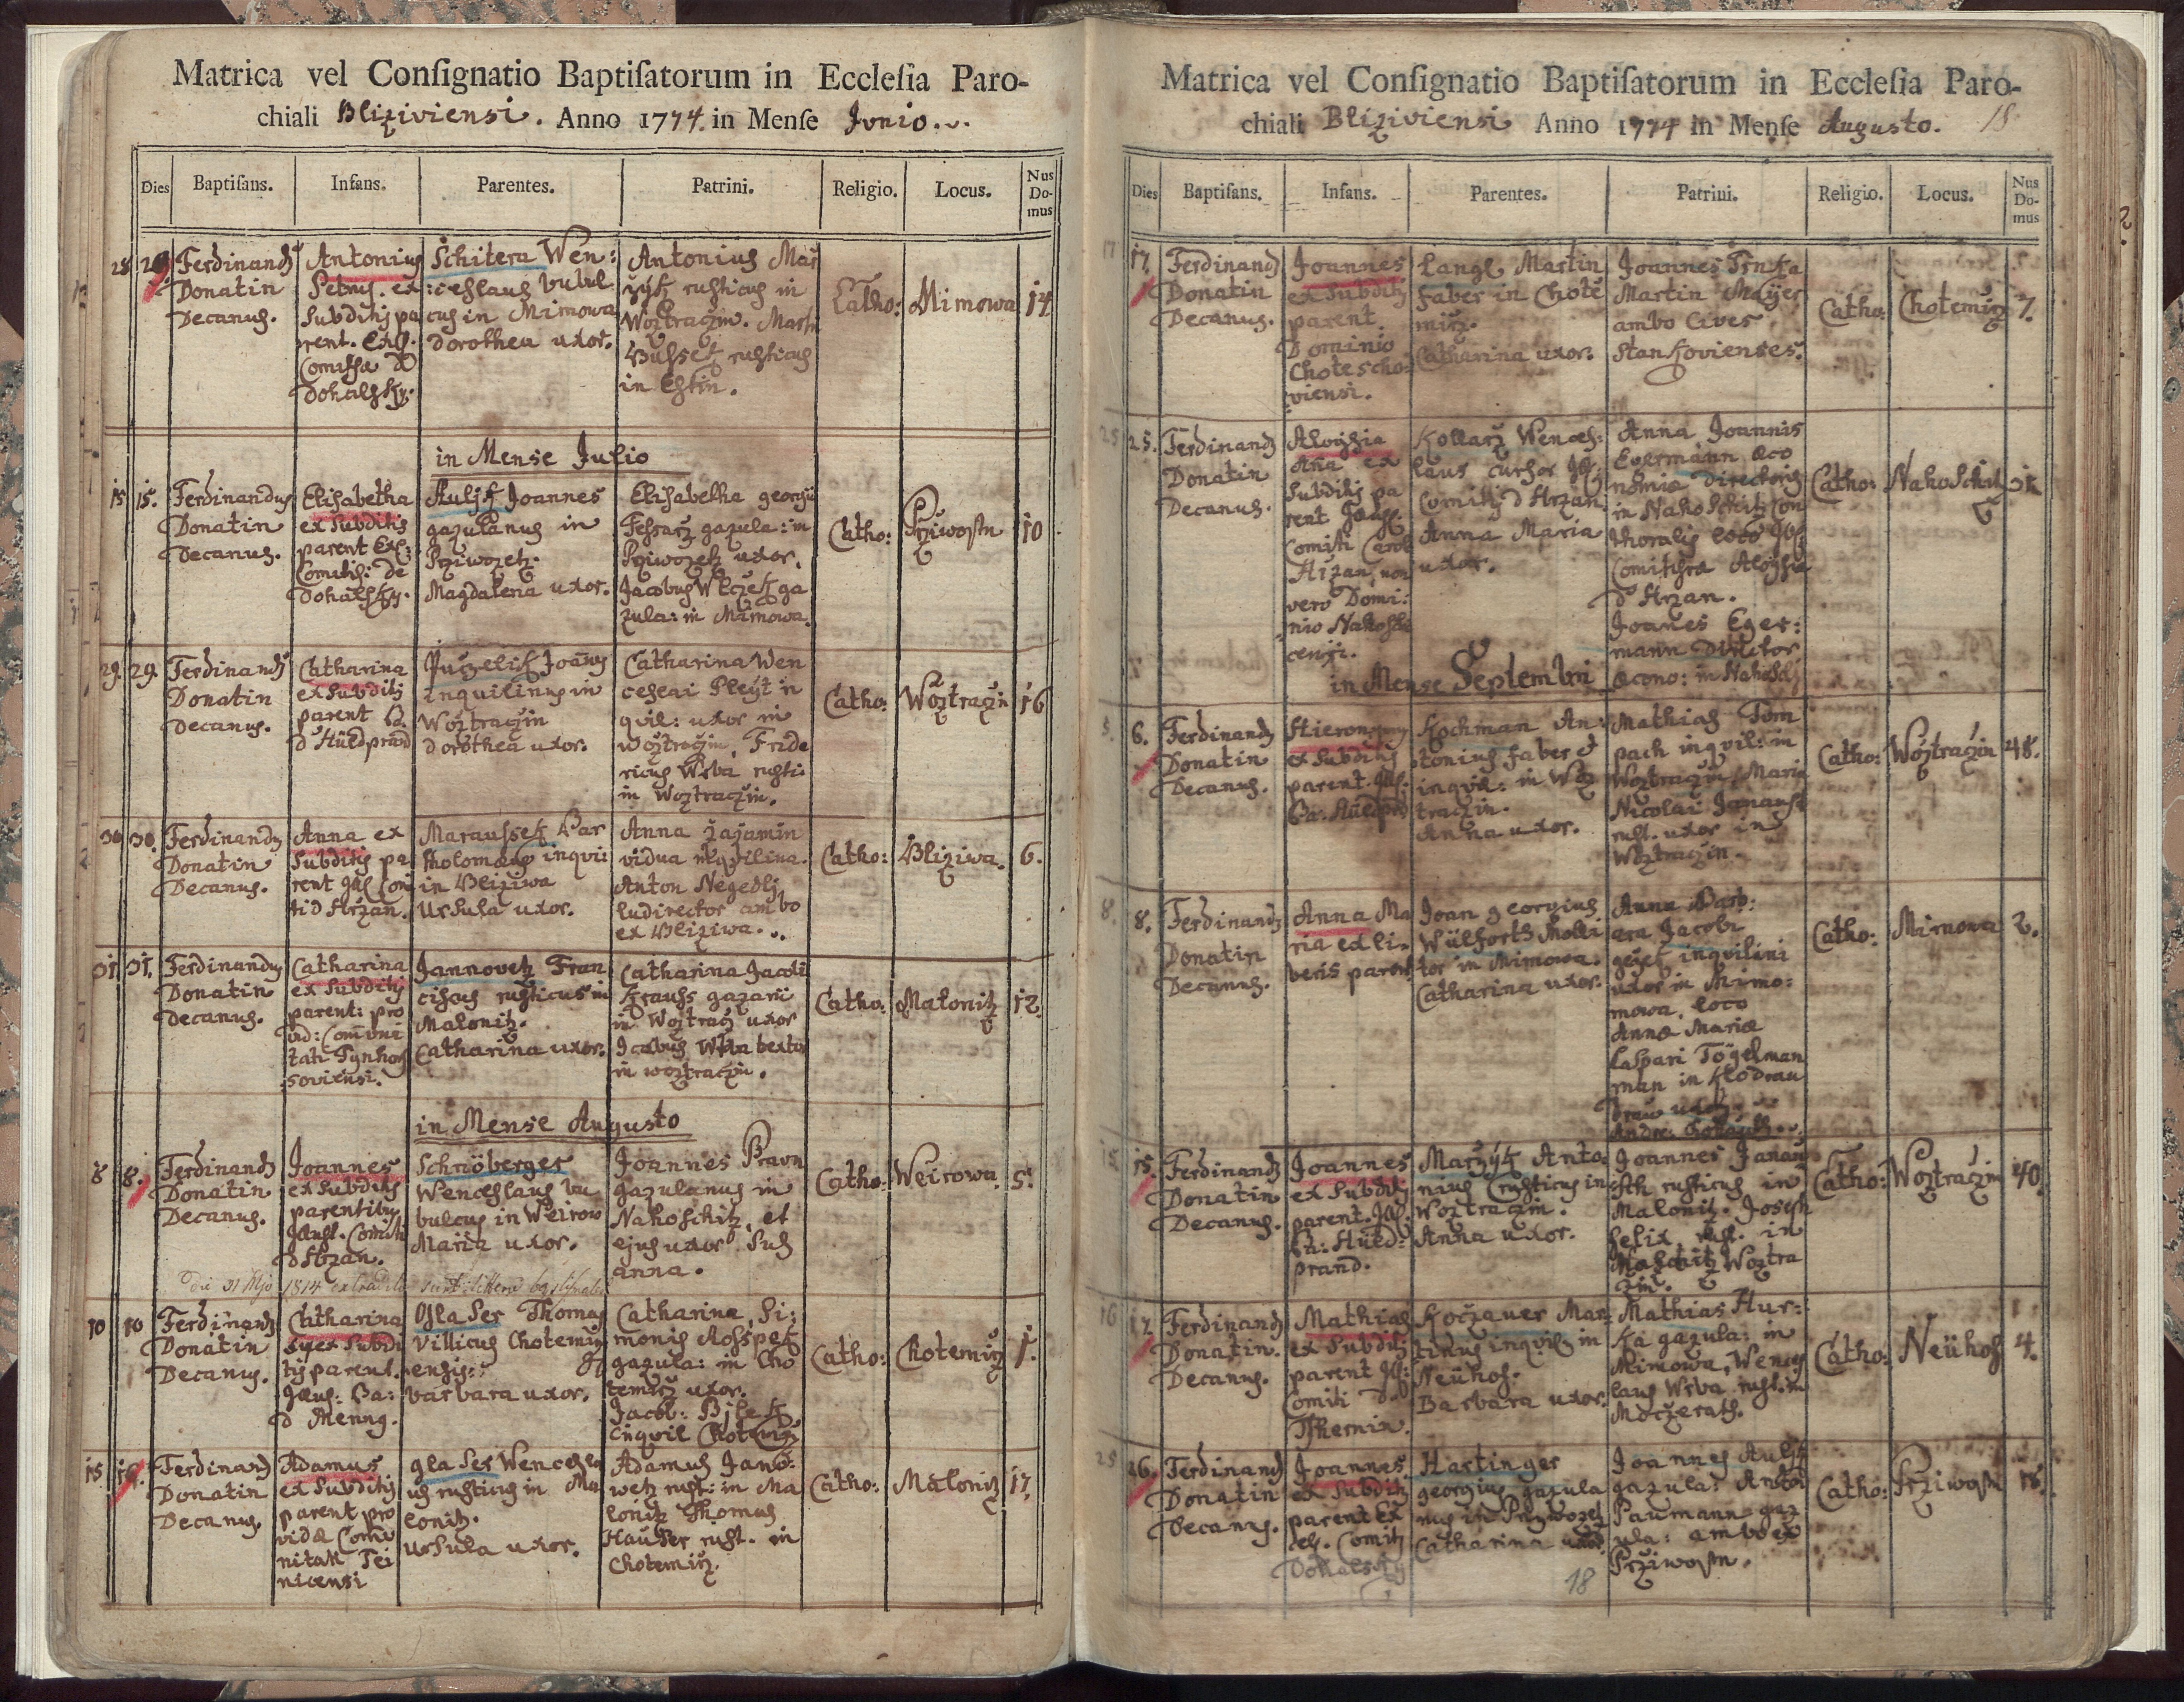 Matrica vel Conſignatio Baptiſatorum in Eccleſia Paro-
chiali Bliziviensi. Anno 1774. in Menſe Junio.
Dies Baptiſans. Infans. Parentes. Patrini. Religio. Locus. Nus Do- mus
28 29
Ferdinand
Donatin
Decanus.
Antonius
Petrus. ex
Subditis pa
rent. Exc.
Comissa d
Dohalsky.
Schitera Wen:
:ceslaus bubul
cus in Mimowa
Dorothea uxor.
Antonius Mar
zyk rusticus in
Woztraczin. Martin
Bussek rusticus
in Estin.
Catho: Mimowa 14
in Mense Julio
15 15.
Ferdinandus
Donatin
Decanus.
Elisabetha
ex Subditis
parent Exc:
Comitis: de
Dohalsky.
Joannes
gazulanus in
Magdalena uxor.
Elisabetha georgii
gazula: in
uxor.
Jacobus Wlczek ga
zula: in Mimowa.
Catho: 10
29. 29.
Ferdinand
Donatin
Decanus.
Catharina
ex Subditis
parent B.
d Hüldprand
Puczelik Joanes
inquilinus in
Woztraczin
Dorothea uxor.
Catharina Wen
ceslai Pleyt in
qvil: uxor in
Woztraczin, Fride
ricus Wrba rusti:
in Woztraczin.
Catho: Woztraczin 16
30 30.
Ferdinand
Donatin
Decanus.
Anna ex
Subditis pa
rent Ill Com
ti d Hrzan.
Maraussek Bar
tholomæus inqvi:
in Bliziwa
Ursula uxor.
Anna
vidua inqvilina.
Anton Negedly
ludirector ambo
ex Bliziwa.
Catho: Bliziwa. 6.
31. 31.
Ferdinandus
Donatin
Decanus.
Catharina
ex Subditis
parent: pro
vid: Comuni
tati Tynhos
soviensi.
Jannovetz Fran
ciscus rusticus in
Malonitz.
Catharina uxor:
Catharina Jacobi
Krauss gazarii
in Woztracz uxor
Jacobus Wrba textor
in woztraczin.
Catho: Malonitz 12.
in Mense Augusto
8 8.
Ferdinand
Donatin
Decanus.
Joannes
ex Subditis
parentibus
Illust. Comiti
d Hrzan.
Schnöberger
Wenceslaus bu
bulcus in Weirow
Maria uxor.
Joannes Braun
gazulanus in
Nahoschitz, et
ejus uxor Sus
anna.
Catho: Weirowa. 5.
die 31 1814 extradita sunt littera baptismales
10 10
Ferdinand
Donatin
Decanus.
Catharina
ex Subdi
tis parent.
Illus: Ba:
d Menng.
Glaser Thomas
Villicus Chotemirz
ensis:
barbara uxor.
Catharina, Si:
monis Rosspek
gazula: in Cho
temirz uxor.
Jacob: Bilek
inqvil Chotemirz
Catho: Chotemirz 1.
15
Ferdinand
Donatin
Decanus.
Adamus
ex Subditis
parent pro
vidæ Comu
nitati Tei
nicensi
glaser Wencesla
us rusticus in Ma
lonitz.
Ursula uxor.
Adamus Jano:
wetz rust: in Ma
lonitz Thomas
Hauser rust. in
Chotemirz.
Catho: Malonitz 17.
Matrica vel Conſignatio Baptiſatorum in Eccleſia Paro-
chiali Bliziviensi Anno 1774 in Menſe Augusto. 18
Dies Baptiſans. Infans. Parentes. Patrini. Religio. Locus. Nus Do- mus
17 17.
Ferdinand
Donatin
Decanus.
Joannes
ex Subditis
parent.
Dominio
Chotescho:
viensi.
Lang Martin
faber in Chote
mirz.
Catharina uxor.
Joannes Trnka
Martin Mayer
ambo Cives
Stankovienses.
Catho: Chotemirz 7.
25 25.
Ferdinand
Donatin
Decanus.
Aloysia
Ana ex
Subditis pa
rent
Comiti
Hrzan, non
vero Domi:
nio Nahoshi
censi.
Kollarz Wences:
laus cursor Ill:
Comitis d Hrzan.
Anna Maria
uxor.
Anna Joannis
Egermann œco
nomiæ Directoris
in Nahoschitz Con
thoralis loco Ill:
Comitissæ Aloysiæ
d Hrzan.
Joanes Eger:
mann Director
œcono: in Nahosch
Catho: Nahoschitz
in Mense Septembri
5. 6.
Ferdinand
Donatin
Decanus.
Hieronymus
ex Subditis
parent. Ill:
Ba. Hüldprd
Kochman An:
tonius faber et
inqvil: in Woz
traczin.
Anna uxor.
Mathias Tom
pach inqvil: in
Woztraczin Maria
Nicolai Janausch
rust. uxor in
Woztraczin.
Catho: Woztraczin 48.
8. 8.
Ferdinand
Donatin
Decanus.
Anna Ma
ria ex li:
beris parent
Joan georgius
Wülforth Moli
tor in Mimowa.
Catharina uxor.
Anna Barb:
ara Jacobi
inqvilini
uxor in Mimo:
mowa, loco
Annæ Mariæ
Caspari Tögelman
man in Klodrau
drau uxor,
Catho: Mimowa 2.
15 15.
Ferdinand
Donatin
Decanus.
Joannes
ex Subditis
parent. Ill:
Ba: Hüld:
prand.
Marzyk Anto:
nius rusticus in
Woztraczin.
Anna uxor.
Joannes Janau
sch rusticus in
Malonitz. Joseph
felix, rust. in
Woztra
czin.
Catho: Woztraczin 40.
16 17.
Ferdinand
Donatin.
Decanus.
Mathias
ex Subditis
parent Ill:
Comiti d
Tshernin.
Koczauer Mar
tinus inqvil: in
Neühof.
Barbara uxor.
Mathias Hur:
ka gazula: in
Mimowa, Wences
laus Wrba rust. in
Moczerath.
Catho: Neühof 4.
25 26.
Ferdinand
Donatin
Decanus.
Joannes
ex Subditis
parent Ex
cel. Comitis
Dohalsky
Hartinger
georgius gazula
nus in
Catharina uxor.
Joannes Aulik
gazula: Anton
Paumann gaz
ula: ambo ex
Prziwostn.
Catho: Prziwostn 16.
18